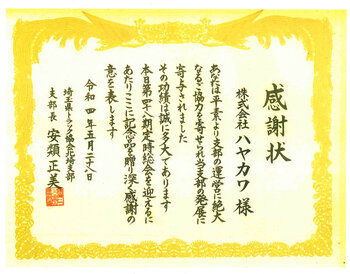 感謝状
株式会社 ハヤカワ 様
あなたは平素より支部の運営に絶大
なるご協力を寄せられ当支部の発展に
寄与されました
その功績は誠に多大であります
本日第四十八期定時総会を迎えるに
あたりここに記念品を贈り深く感謝の
意を表します
令和四年五月二十八日
埼玉県トラック協会北埼支部
支部長 安須正美